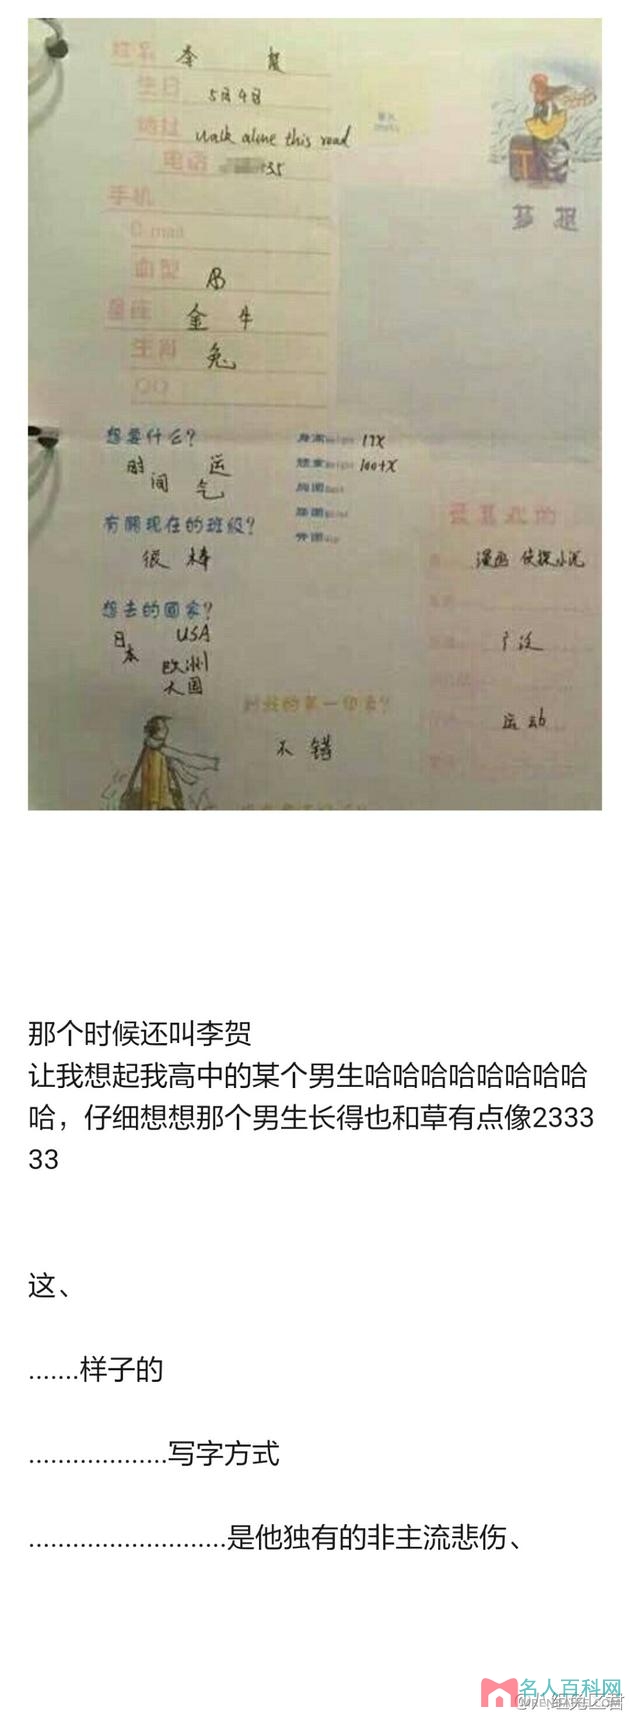 姓名 李 贺
生日 5月4日
地址 walk alone this road
电话 35
手机
E-mail
血型 B
星座 金牛
生肖 兔
QQ
梦想
想要什么?
时间 运气
有关现在的班级?
很棒
想去的国家?
日本 USA
欧洲
大国
身高 17X
体重 100+X
胸围
腰围
臀围
最喜欢的
漫画 侦探小说
广泛
运动
对我的第一印象?
不错
那个时候还叫李贺
让我想起我高中的某个男生哈哈哈哈哈哈哈哈
哈，仔细想想那个男生长得也和草有点像2333
33
这、
.......样子的
...................写字方式
...........................是他独有的非主流悲伤、
名人百科网